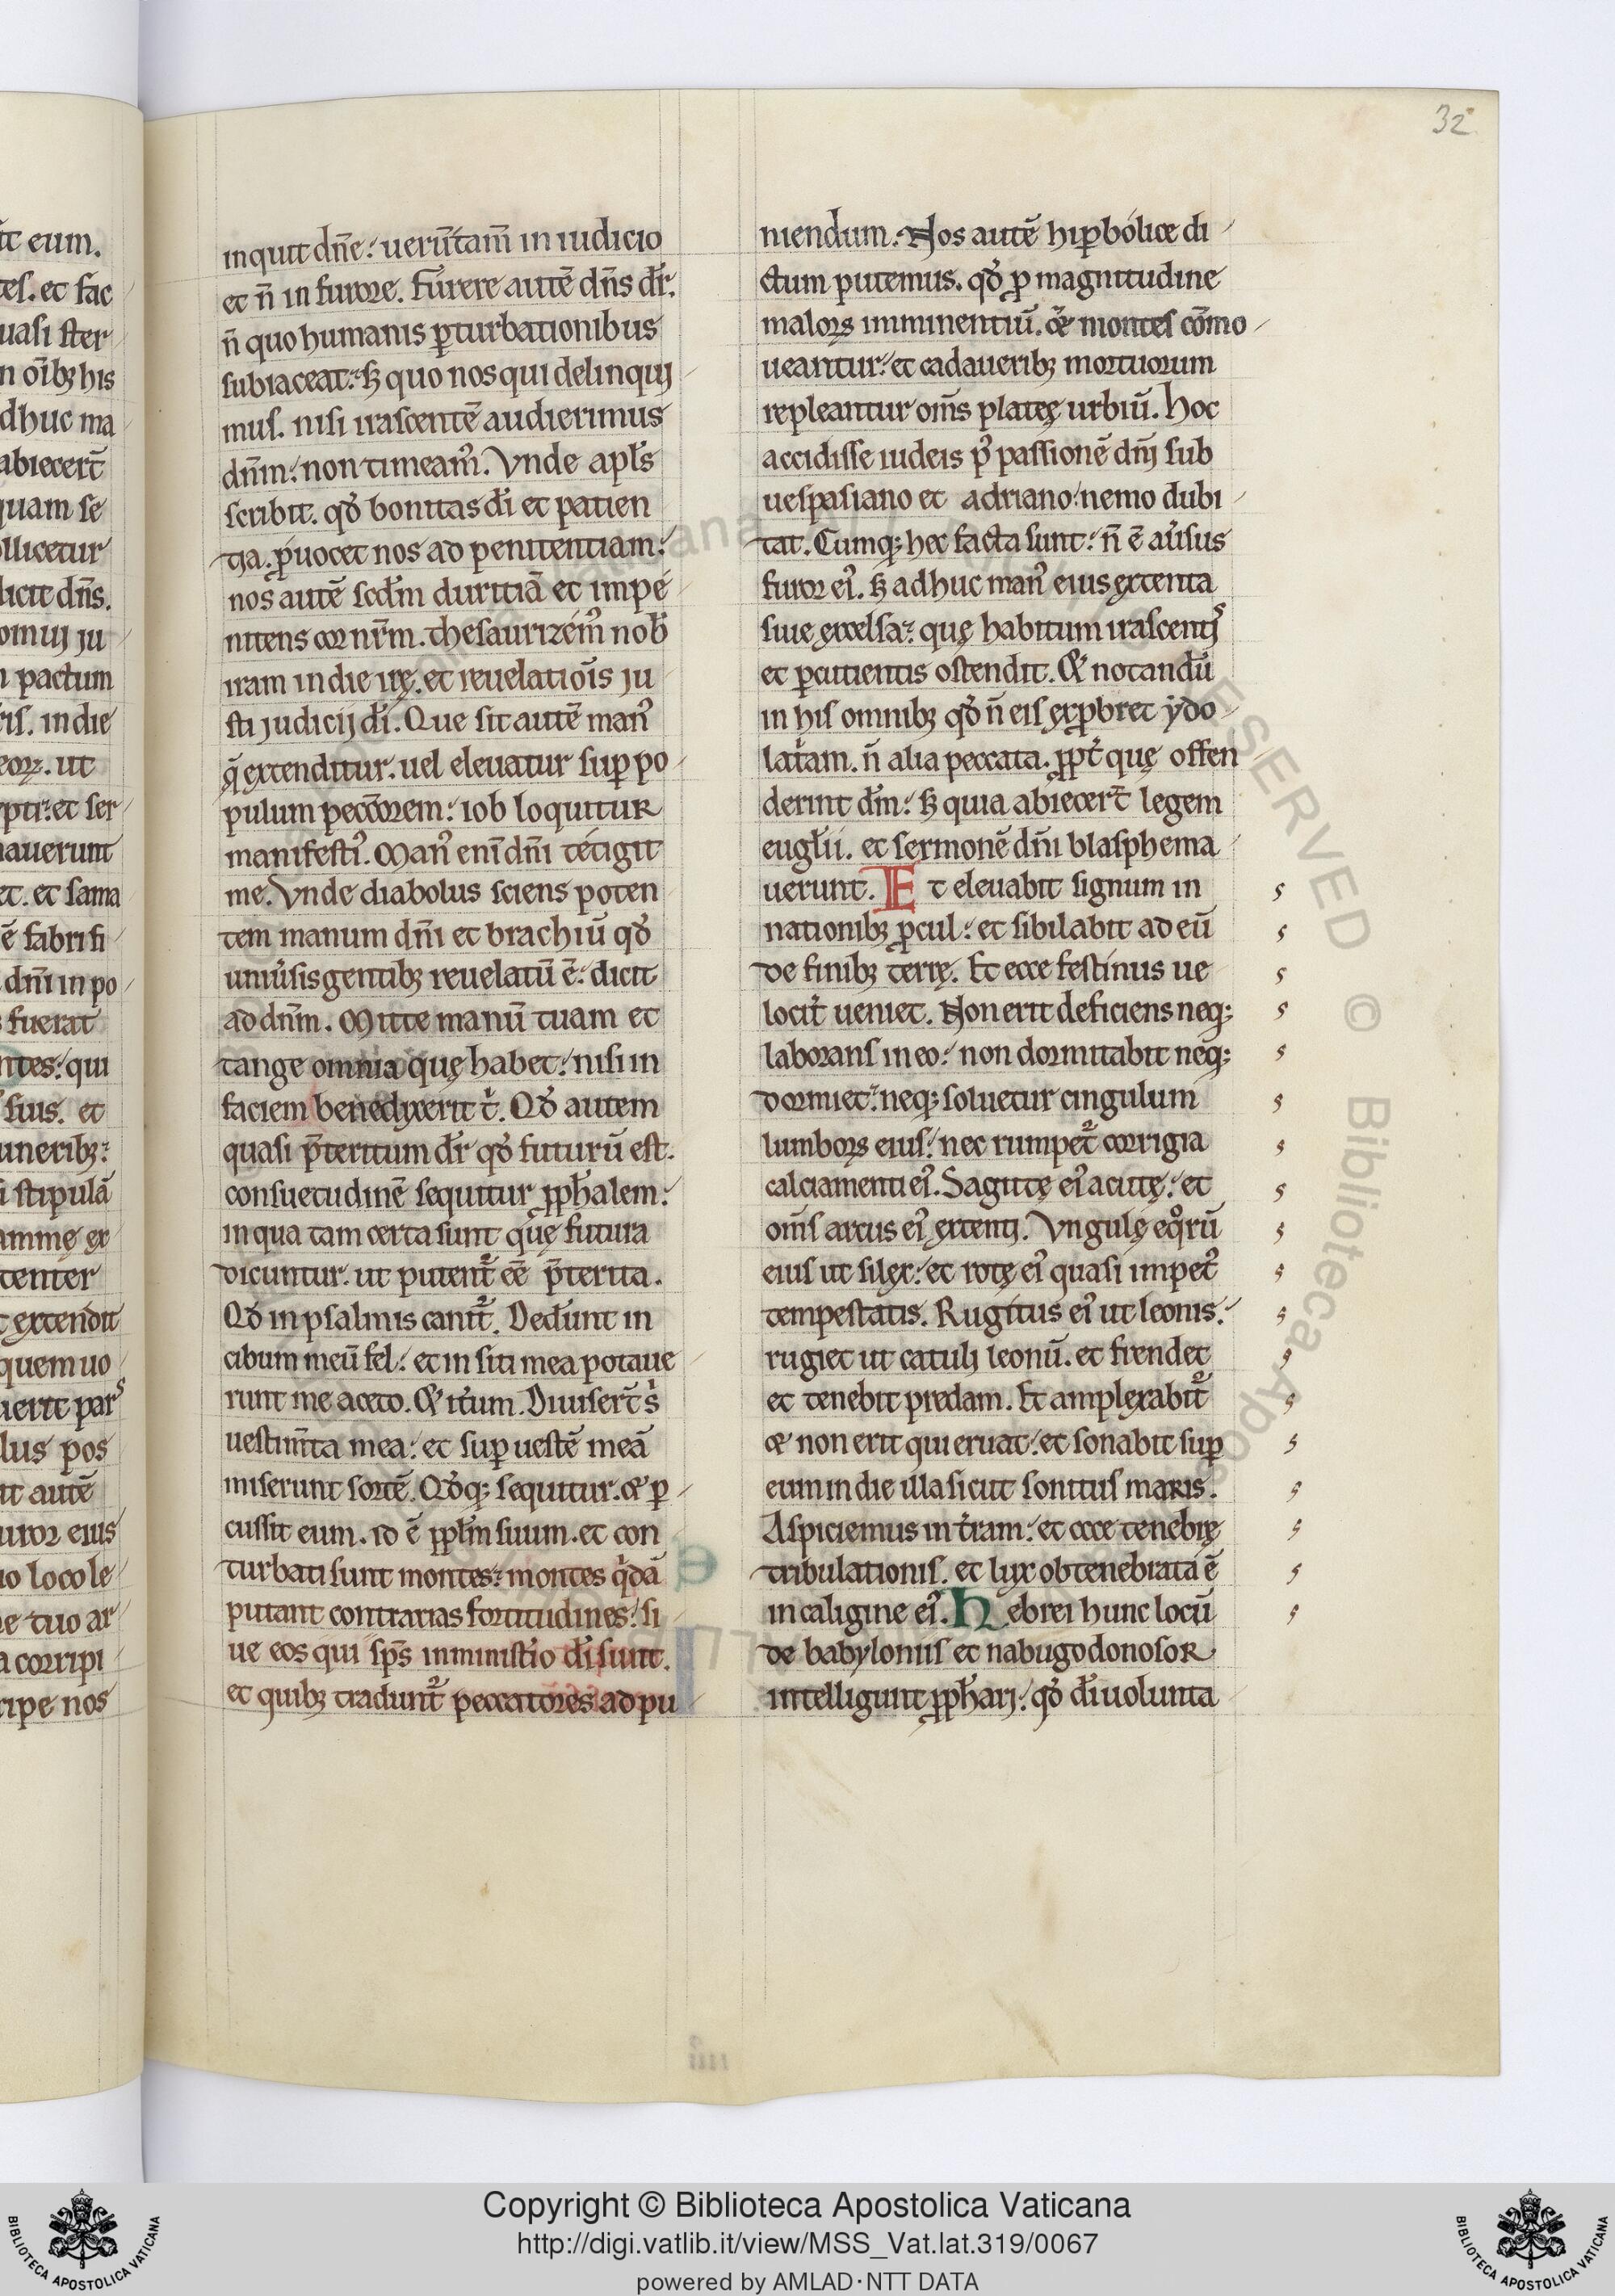 32
inquit dn̄e. uerūtam̄ in iudicio
et n̄ in furore. Furere autē dn̄s dr̄.
n̄ quo humanis ꝑturbationibus
subiaceat. sꝫ quo nos qui delinqui
mus. nisi irascentē audierimus
dn̄m. non timeamꝰ. Vnde apl̄s
scribit. qd̓ bonitas dī et patien
tia. ꝓuocet nos ad penitentiam.
nos autē scd̄m duritiā et impe
nitens cor nr̄m. thesaurizemꝰ nob̄
iram in die irę. et reuelatiōis ju
sti judicij dī. Que sit autē manꝰ
q̄ extenditur. uel eleuatur suꝑ po
pulum peccōrem. iob loquitur
manifestiꝰ. Manꝰ enī dn̄i tetigit
me. Vnde diabolus sciens poten
tem manum dn̄i et brachiū qd̓
uniu̓sis gentibꝫ reuelatū ē. dicit
ad dn̄m. Mitte manū tuam et
tange omnia quę habet. nisi in
faciem benedixerit t̓. Qd̓ autem
quasi p̄teritum dr̄ qd̓ futurū est.
consuetudinē sequitur ꝓph̄alem.
in qua tam certa sunt quę futura
dicuntur. ut putent᷑ eē p̄terita.
Qd̓ in psalmis canit᷑. Ded̓unt in
cibum meū fel. et in siti mea potaue
runt me aceto. Et it̓um. Diuisert̄ s̓
uestim̄ta mea. et suꝑ uestē meā
miserunt sortē. Qd̓qꝫ sequitur. et ꝑ
cussit eum. id ē ppl̄m suum. et con
turbati sunt montes. montes q̓dā
putant contrarias fortitudines. si
ue eos qui sp̄s in minist̓io dī sunt.
et quibꝫ tradunt᷑ peccatores ad pu
niendum. Nos autē hiꝑbolice di
ctum putemus. qd̓ ꝓ magnitudine
maloꝝ imminentiū. et montes cōmo
ueantur. et cadaueribꝫ mortuorum
repleantur om̄s plateę urbiū. Hoc
accidisse iudeis pꝰ passionē dn̄j sub
uespasiano et adriano. nemo dubi
tat. Cumqꝫ hec facta sunt. n̄ ē au̓sus
furor eiꝰ. sꝫ adhuc manꝰ eius extenta
siue excelsa. quę habitum irascentis
et ꝑcutientis ostendit. Et notandū
in his omnibꝫ qd̓ n̄ eis exꝓbret ydo
lat̓am. n̄ alia peccata. ꝓpt̓ quę offen
derint dm̄. sꝫ quia abiecert̄ legem
eugl̄ii. et sermonē dn̄i blasphema
uerunt. Et eleuabit signum in
nationibꝫ ꝓcul. et sibilabit ad eū
de finibꝫ terrę. Et ecce festinus ue
locit̓ ueniet. Non erit deficiens neqꝫ
laborans in eo. non dormitabit neqꝫ
dormiet. neqꝫ soluetur cingulum
lumboꝝ eius. nec rumpet᷑ corrigia
calciamenti eiꝰ. Sagittę eiꝰ acutę. et
om̄s arcus eiꝰ extenti. Vngulę eqͦrū
eius ut silex. et rotę eiꝰ quasi impetꝰ
tempestatis. Rugitus eiꝰ ut leonis.
rugiet ut catuli leonū. et frendet
et tenebit predam. Et amplexabit᷑
et non erit qui eruat. et sonabit suꝑ
eum in die illa sicut sonitus maris.
Aspiciemus in t̓ram. et ecce tenebrę
tribulationis. et lux obtenebrata ē
in caligine eiꝰ. Hebrei hunc locū
de babyloniis et nabugodonosor
intelligunt ꝓph̄ari. qd̓ dī uolunta
Copyright © Biblioteca Apostolica Vaticana
http://digi.vatlib.it/view/MSS_Vat.lat.319/0067
powered by AMLAD·NTT DATA